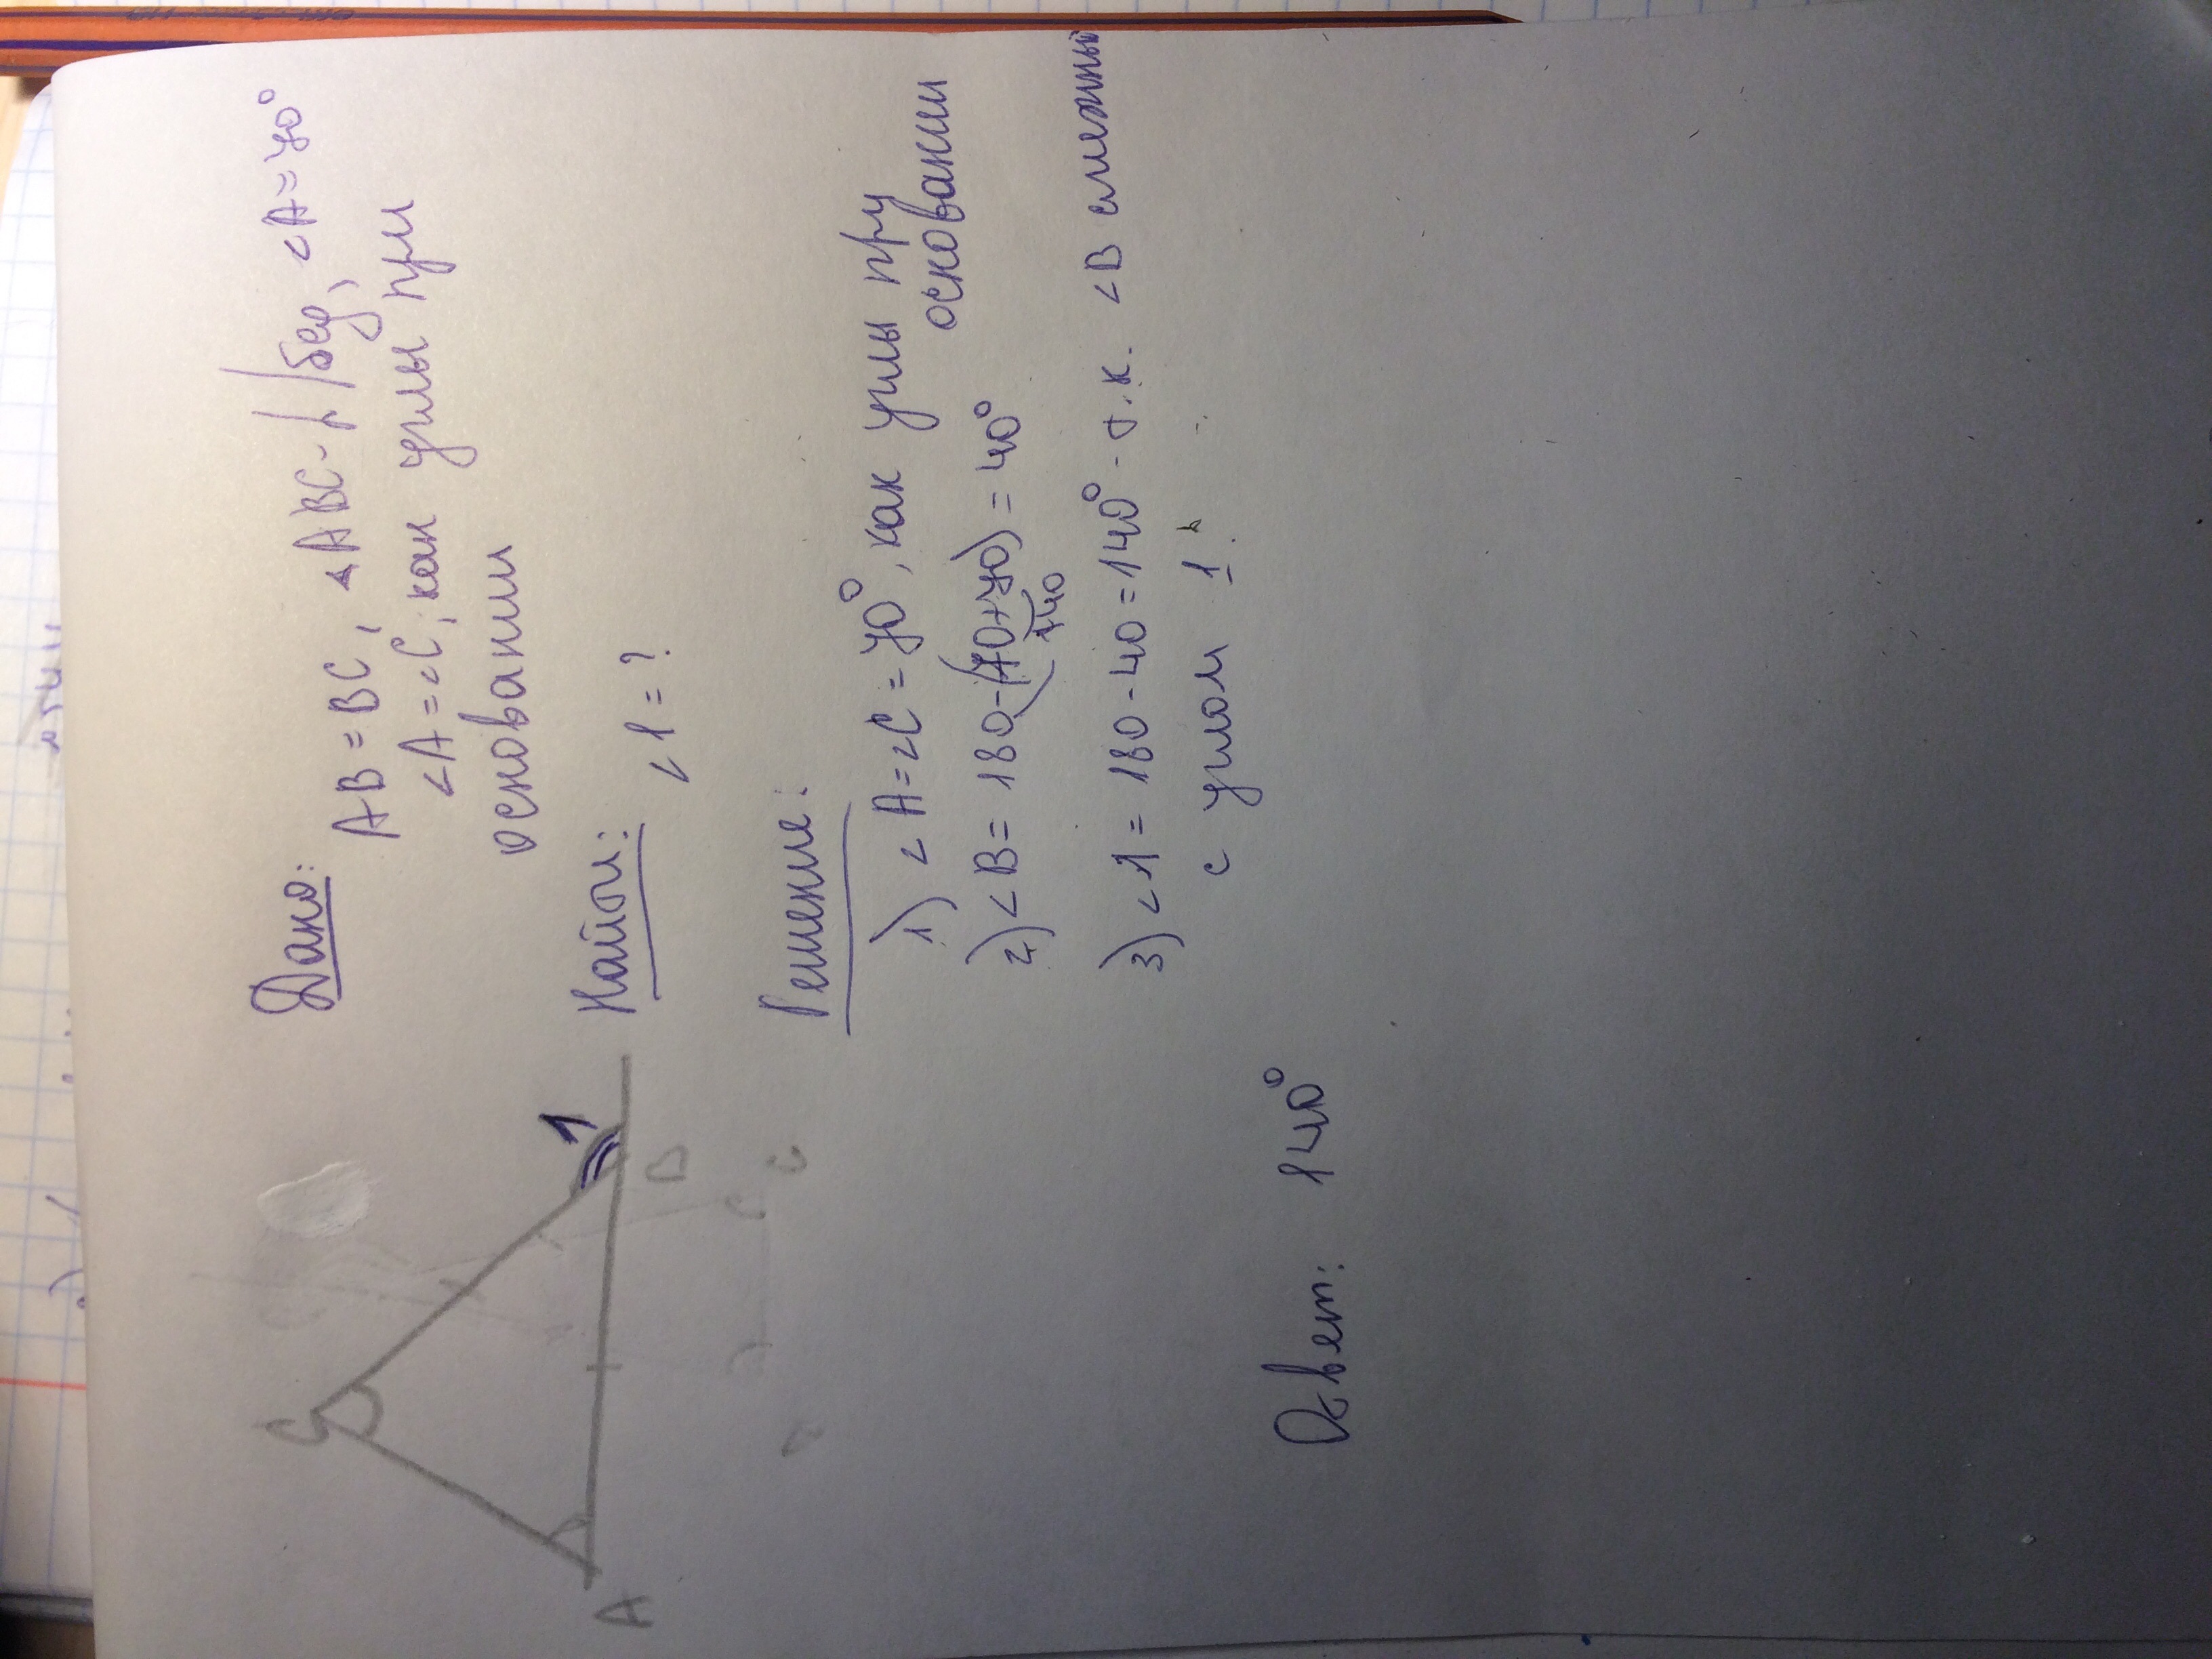 Дано:
AB = BC, ◁ ABC - р/бед, <A = 70°
<A = <C, как углы при
основании
Найти: <1 = ?
C
1
A
B
Решение:
1) <A = <C = 70°, как углы при
основании
2) <B = 180 - (70 + 70) = 40°
140
3) <1 = 180 - 40 = 140° - т.к. <B смежный
с углом 1.
Ответ: 140°